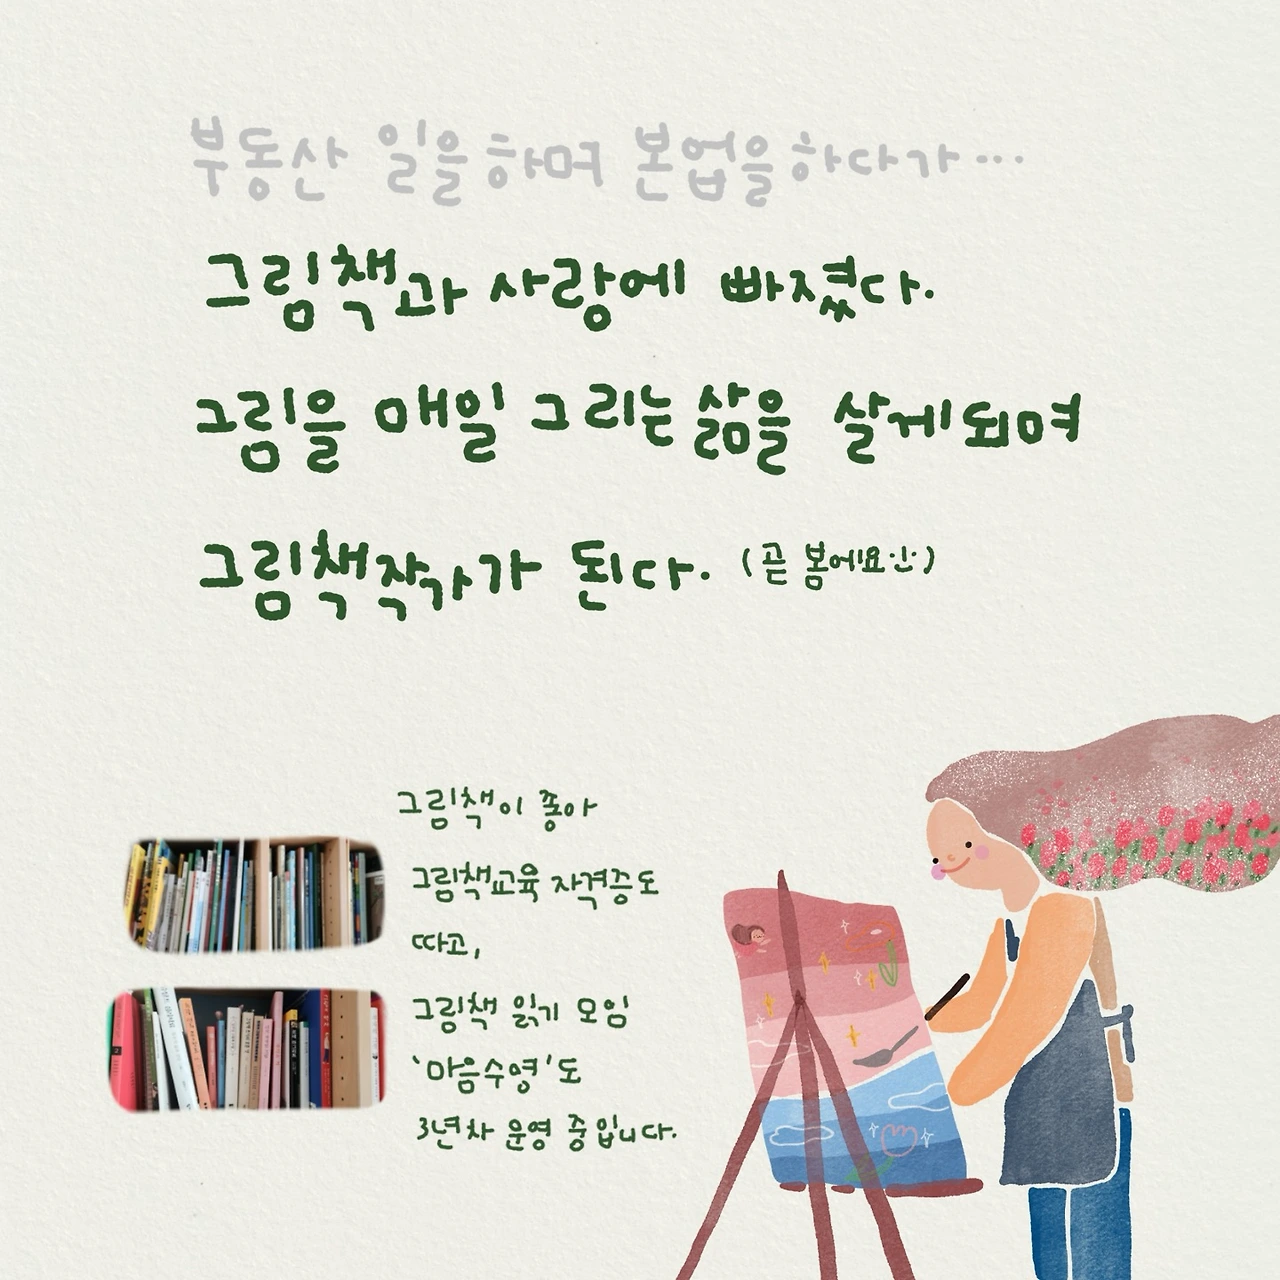 부동산 일을 하며 본업을 하다가...
그림책과 사랑에 빠졌다.
그림을 매일 그리는 삶을 살게되며
그림책작가가 된다. (곧 봄에요 ㅎ)
그림책이 좋아
그림책교육 자격증도
따고,
그림책 읽기 모임
'마음수영'도
3년차 운영 중입니다.